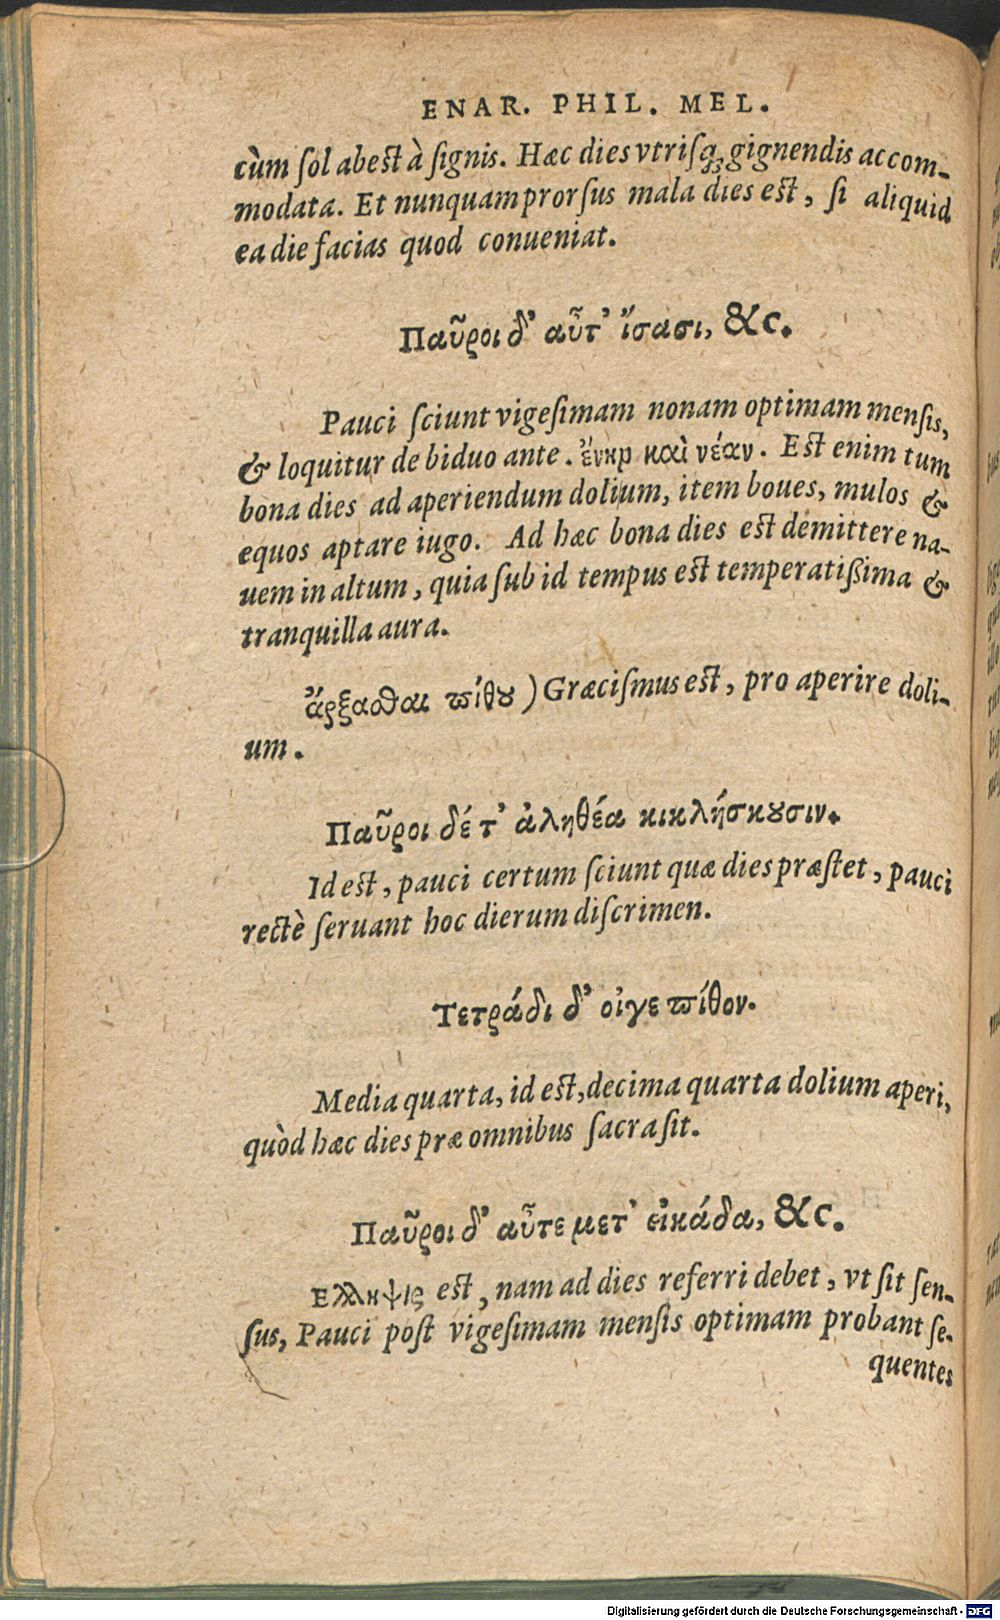 ENAR. PHIL. MEL.
cùm sol abest à signis. Hæc dies vtrisq; gignendis accom-
modata. Et nunquam prorsus mala dies est, si aliquid
ea die facias quod conueniat.
Παῦροι δ' αὖτ' ἴσασι, &c.
Pauci sciunt vigesimam nonam optimam mensis,
& loquitur de biduo ante. ἔνηρ καὶ νέαν. Est enim tum
bona dies ad aperiendum dolium, item boues, mulos &
equos aptare iugo. Ad hæc bona dies est demittere na-
uem in altum, quia sub id tempus est temperatißima &
tranquilla aura.
ἄρξασθαι πίθου) Græcismus est, pro aperire doli-
um.
Παῦροι δέ τ' ἀληθέα κικλήσκουσιν.
Id est, pauci certum sciunt quæ dies præstet, pauci
rectè seruant hoc dierum discrimen.
Τετράδι δ' οἶγε πίθον.
Media quarta, id est, decima quarta dolium aperi,
quòd hæc dies præ omnibus sacra sit.
Παῦροι δ' αὖτε μετ' εἰκάδα, &c.
Ελληψις est, nam ad dies referri debet, vt sit sen-
sus, Pauci post vigesimam mensis optimam probant se-
quentes
Digitalisierung gefördert durch die Deutsche Forschungsgemeinschaft - DFG